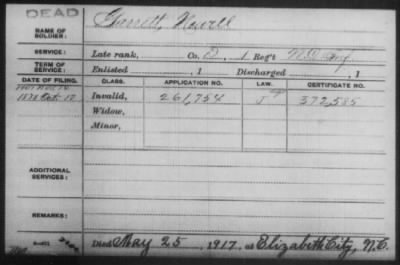 DEAD
NAME OF SOLDIER: Garrett, Newell
SERVICE: Late rank, Co. D, 1 Reg't N.C. Inf.
TERM OF SERVICE: Enlisted , 1 Discharged , 1
DATE OF FILING. CLASS. APPLICATION NO. LAW. CERTIFICATE NO.
Invalid, 261,754 J 372,585
Widow,
Minor,
ADDITIONAL SERVICES:
REMARKS:
Died May 25, 1917, at Elizabeth City, N.C.